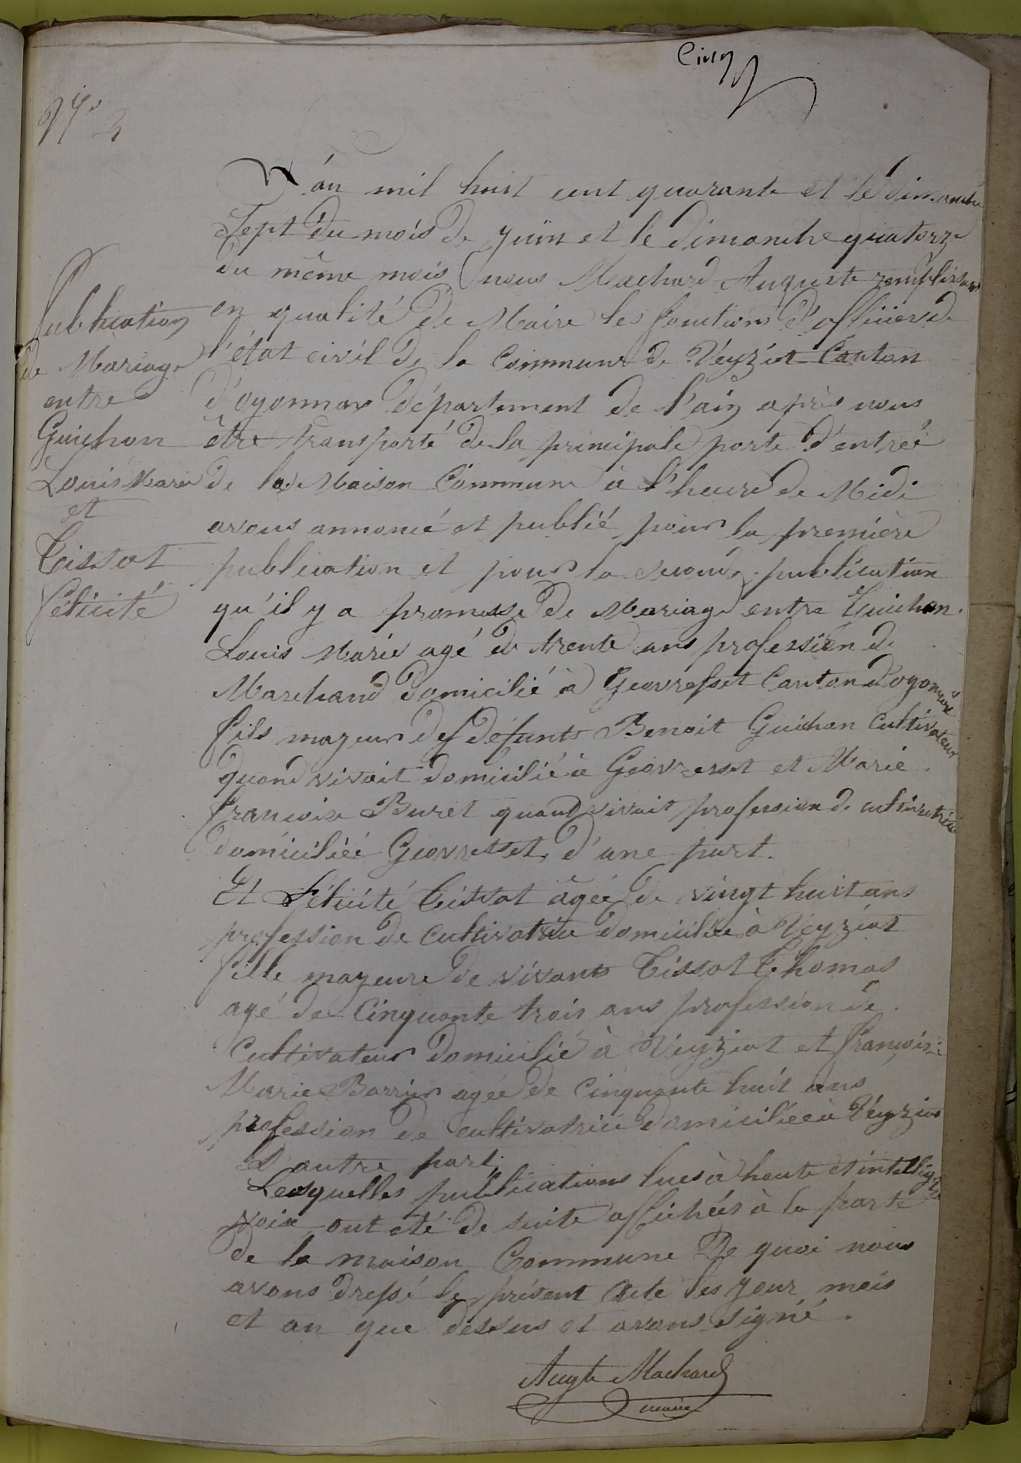 Cinq
N° 3
Publication
de Mariage
entre
Guichon
Louis Marie
et
Tissot
Félicité
L'án mil huit cent quarante et le dimanche
Sept du mois de juin et le dimanche quatorze
du même mois nous Machard Auguste remplissant
en qualité de Maire les fonctions d'officier de
l'état civil de la Commune de Véyziat Canton
d'oyonnax département de l'ain après nous
être transporté de la principale porte d'entrée
de la Maison Commune à l'heure de Midi
avons annoncé et publié pour la première
publication et pour la seconde publication
qu'il y a promesse de Mariage entre Guichon
Louis Marie agé de trente ans profession de
Marchand domicilié à Geovresset Canton d'oyonnax
fils majeur des défunts Benoit Guichon Cultivateur
quand vivait domicilié à Geovresset et Marie
francoise Buret quand vivait profession de cultivatrice
domiciliée Geovresset d'une part.
Et Félicité Tissot âgée de vingt huit ans
profession de Cultivatrice domiciliée à Véyziat
fille majeure de vivants Tissot Thomas
agé de Cinquante trois ans profession de
Cultivateur domicilié à Véyziat et françoise
Marie agée de Cinquante huit ans
profession de cultivatrice domiciliée à Véyziat
d'autre part.
Lesquelles publications lues à haute et intelligible
voix ont été de suite affichées à la porte
de la maison Commune De quoi nous
avons dressé le présent acte les jour mois
et an que dessus et avons signé.
Augte Machard
maire